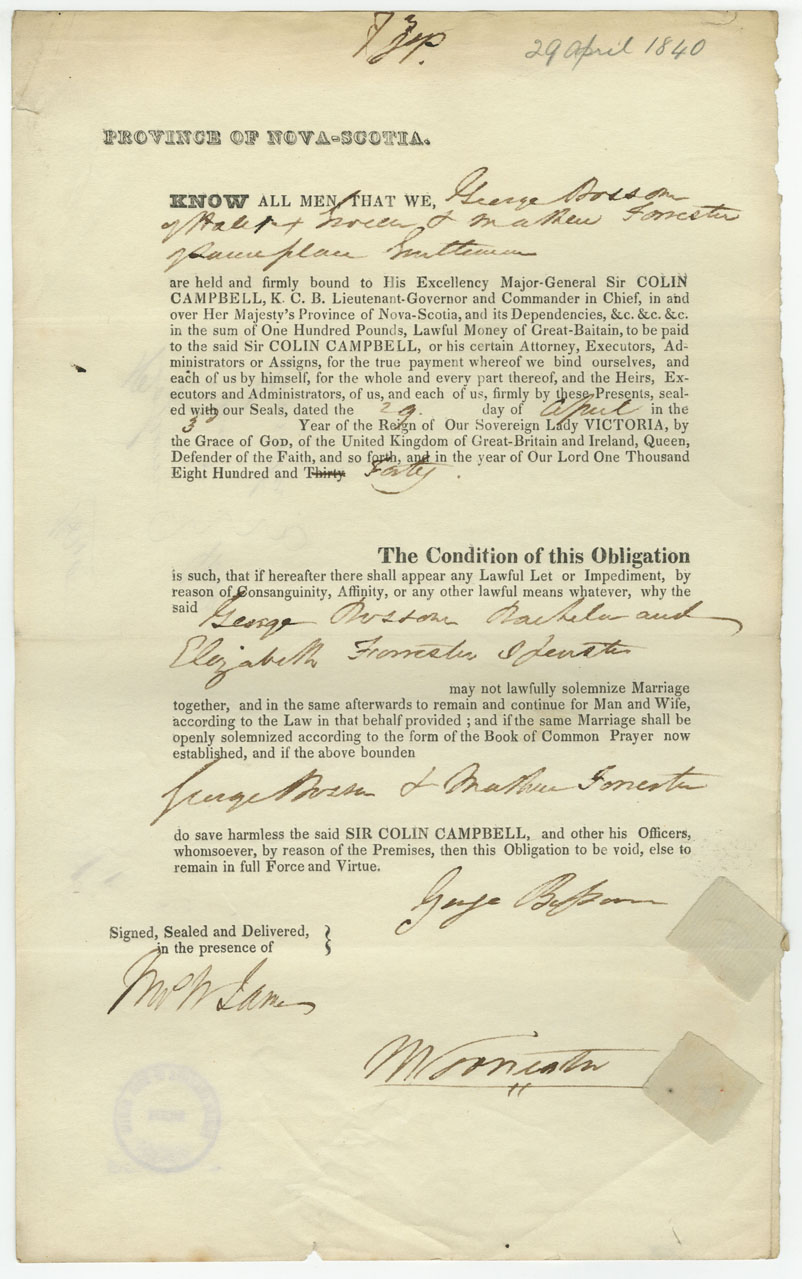 29 April 1840
PROVINCE OF NOVA-SCOTIA.
KNOW ALL MEN, THAT WE, George Bossom
of Halifax & Mathew Forrester
of same place Gentleman
are held and firmly bound to His Excellency Major-General Sir COLIN
CAMPBELL, K. C. B. Lieutenant-Governor and Commander in Chief, in and
over Her Majesty's Province of Nova-Scotia, and its Dependencies, &c. &c. &c.
in the sum of One Hundred Pounds, Lawful Money of Great-Baitain, to be paid
to the said Sir COLIN CAMPBELL, or his certain Attorney, Executors, Ad-
ministrators or Assigns, for the true payment whereof we bind ourselves, and
each of us by himself, for the whole and every part thereof, and the Heirs, Ex-
ecutors and Administrators, of us, and each of us, firmly by these Presents, seal-
ed with our Seals, dated the 29. day of April in the
3d Year of the Reign of Our Sovereign Lady VICTORIA, by
the Grace of GOD, of the United Kingdom of Great-Britain and Ireland, Queen,
Defender of the Faith, and so forth, and in the year of Our Lord One Thousand
Eight Hundred and Thirty Forty.
The Condition of this Obligation
is such, that if hereafter there shall appear any Lawful Let or Impediment, by
reason of Consanguinity, Affinity, or any other lawful means whatever, why the
said George Bossom Bachelor and
Elizabeth Forrester Spinster
may not lawfully solemnize Marriage
together, and in the same afterwards to remain and continue for Man and Wife,
according to the Law in that behalf provided ; and if the same Marriage shall be
openly solemnized according to the form of the Book of Common Prayer now
established, and if the above bounden
George Bossom & Mathew Forrester
do save harmless the said SIR COLIN CAMPBELL, and other his Officers,
whomsoever, by reason of the Premises, then this Obligation to be void, else to
remain in full Force and Virtue.
George Bossom
Signed, Sealed and Delivered,
in the presence of
M Forrester